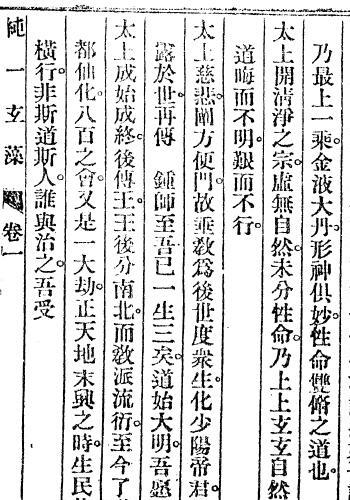 乃最上一乘金液大丹形神俱妙性命雙脩之道也
太上開淸淨之宗虛無自然未分性命乃上上玄玄自然
道晦而不明艱而不行
太上慈悲闡方便門故垂敎爲後世度衆生化少陽帝君
露於世再傳 鍾師至吾已一生三矣道始大明吾愿
太上成始成終後傳王王後分南北而敎派流衍至今了
都仙化八百之會又是一大劫正天地末興之時生民
橫行非斯道斯人誰與治之吾受
純一玄藻 卷一